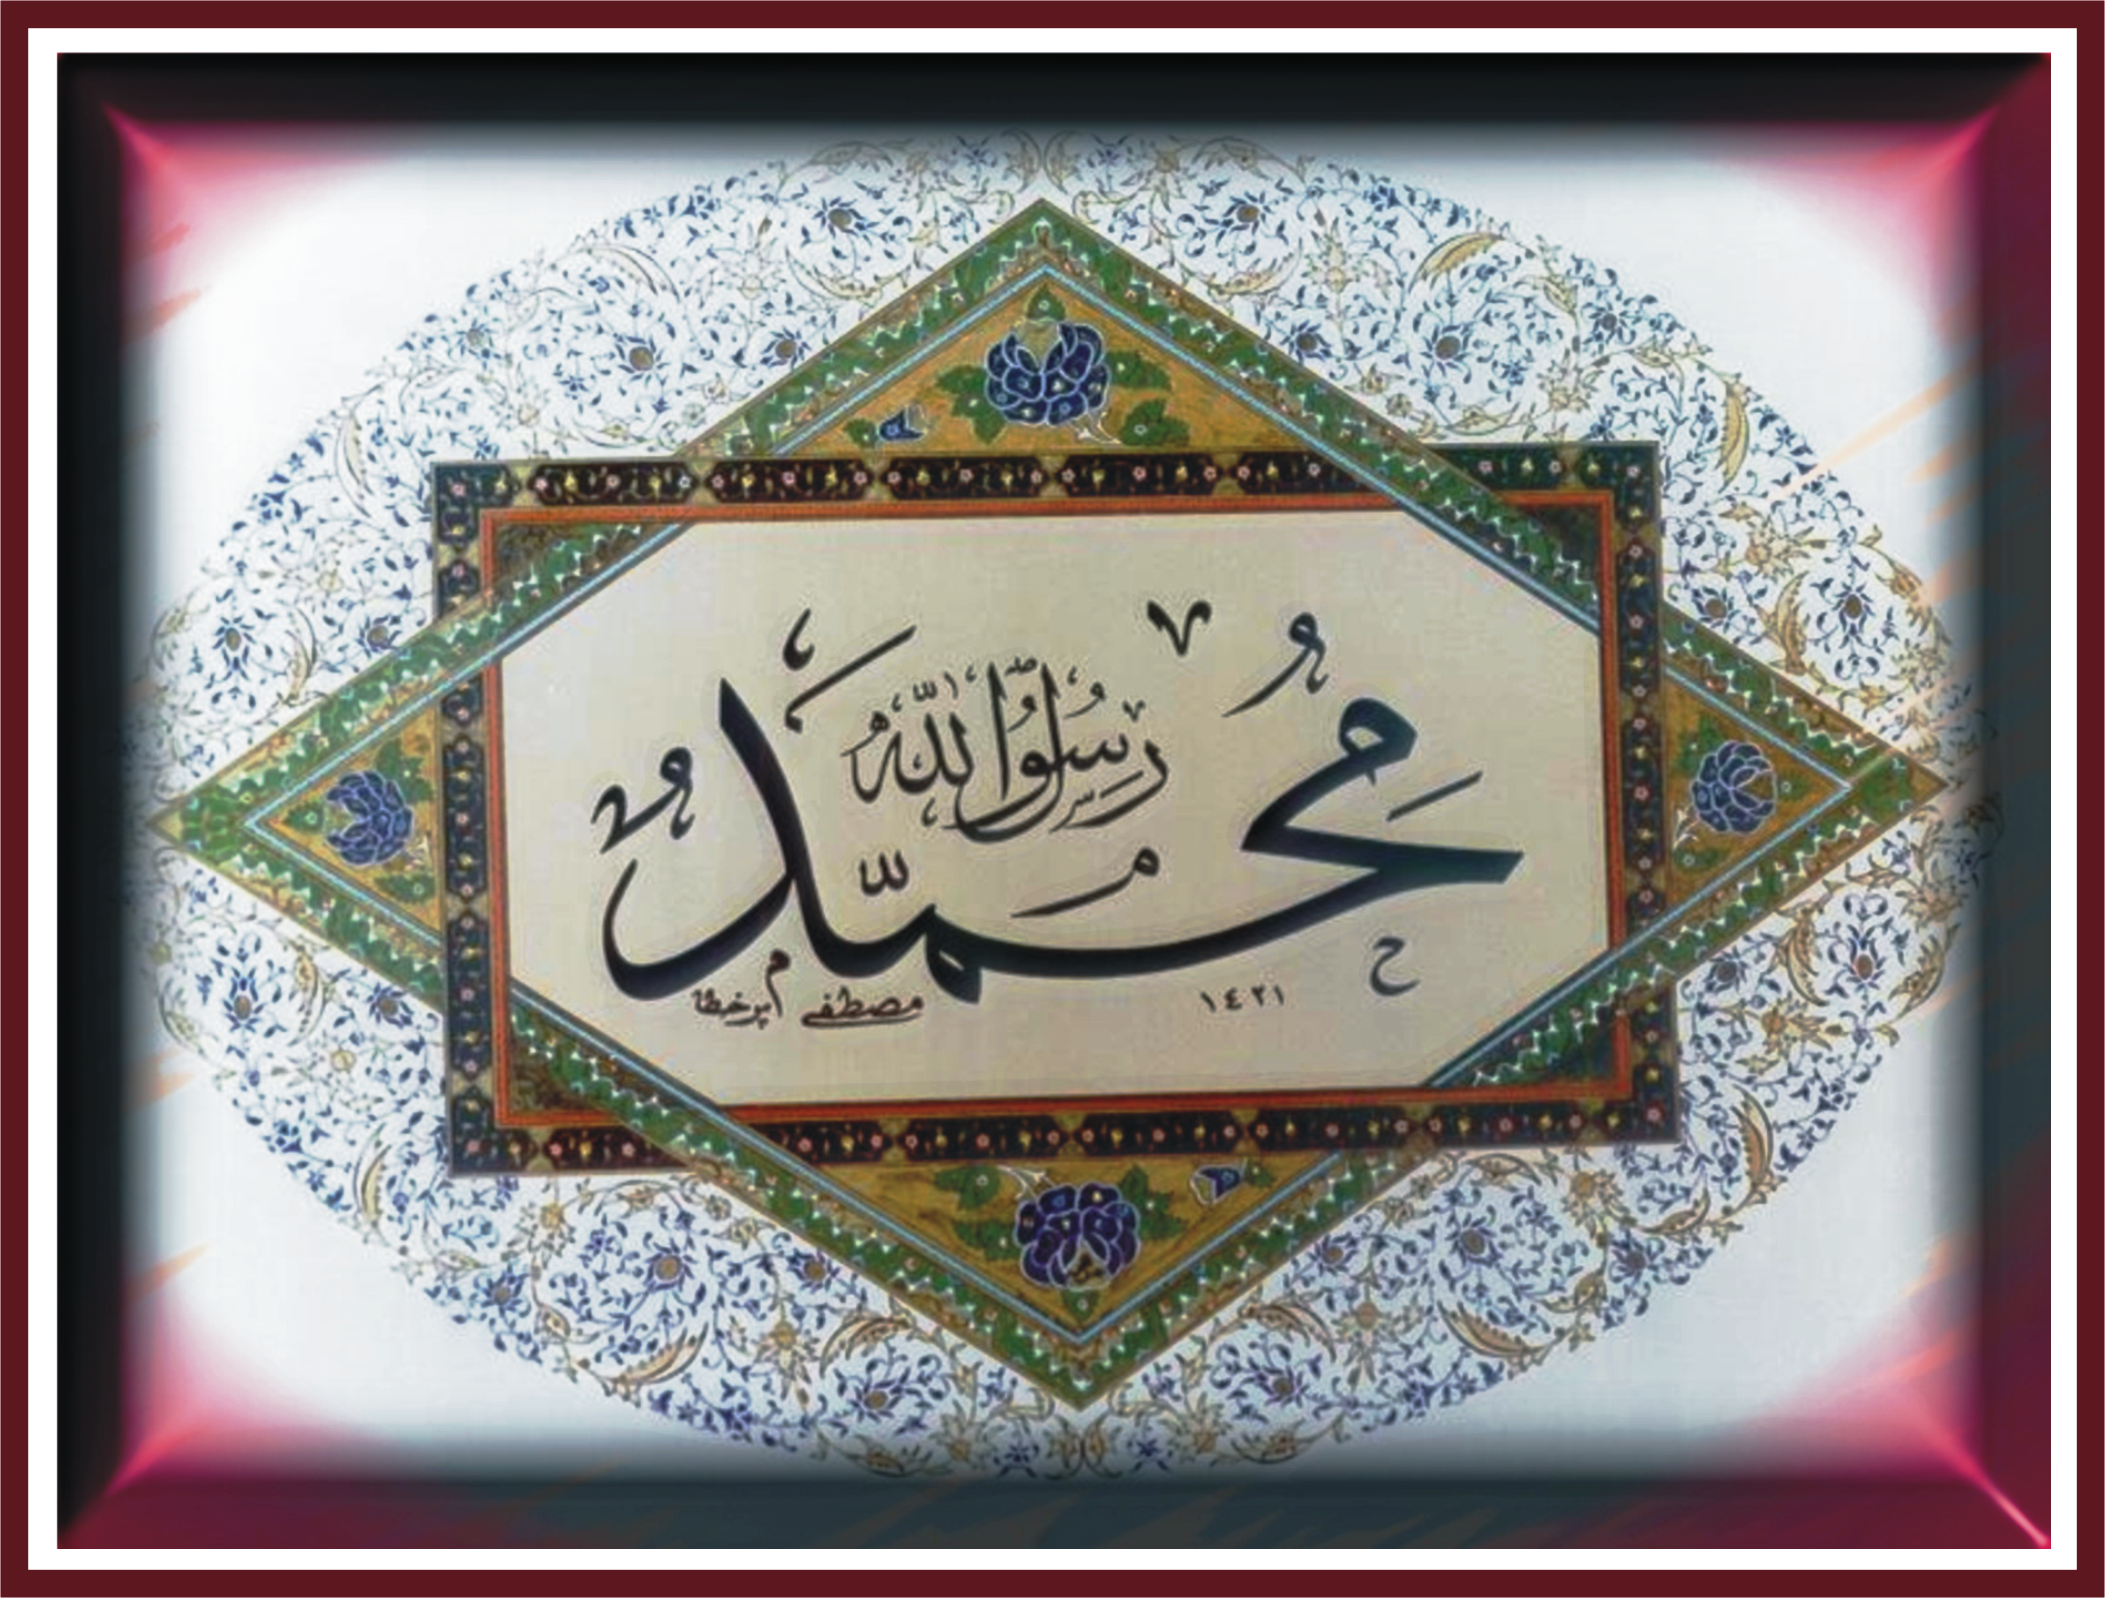 مُحَمَّدٌ
رَسُولُ اللّٰهِ
١٤٢١
مصطفی پرخطا